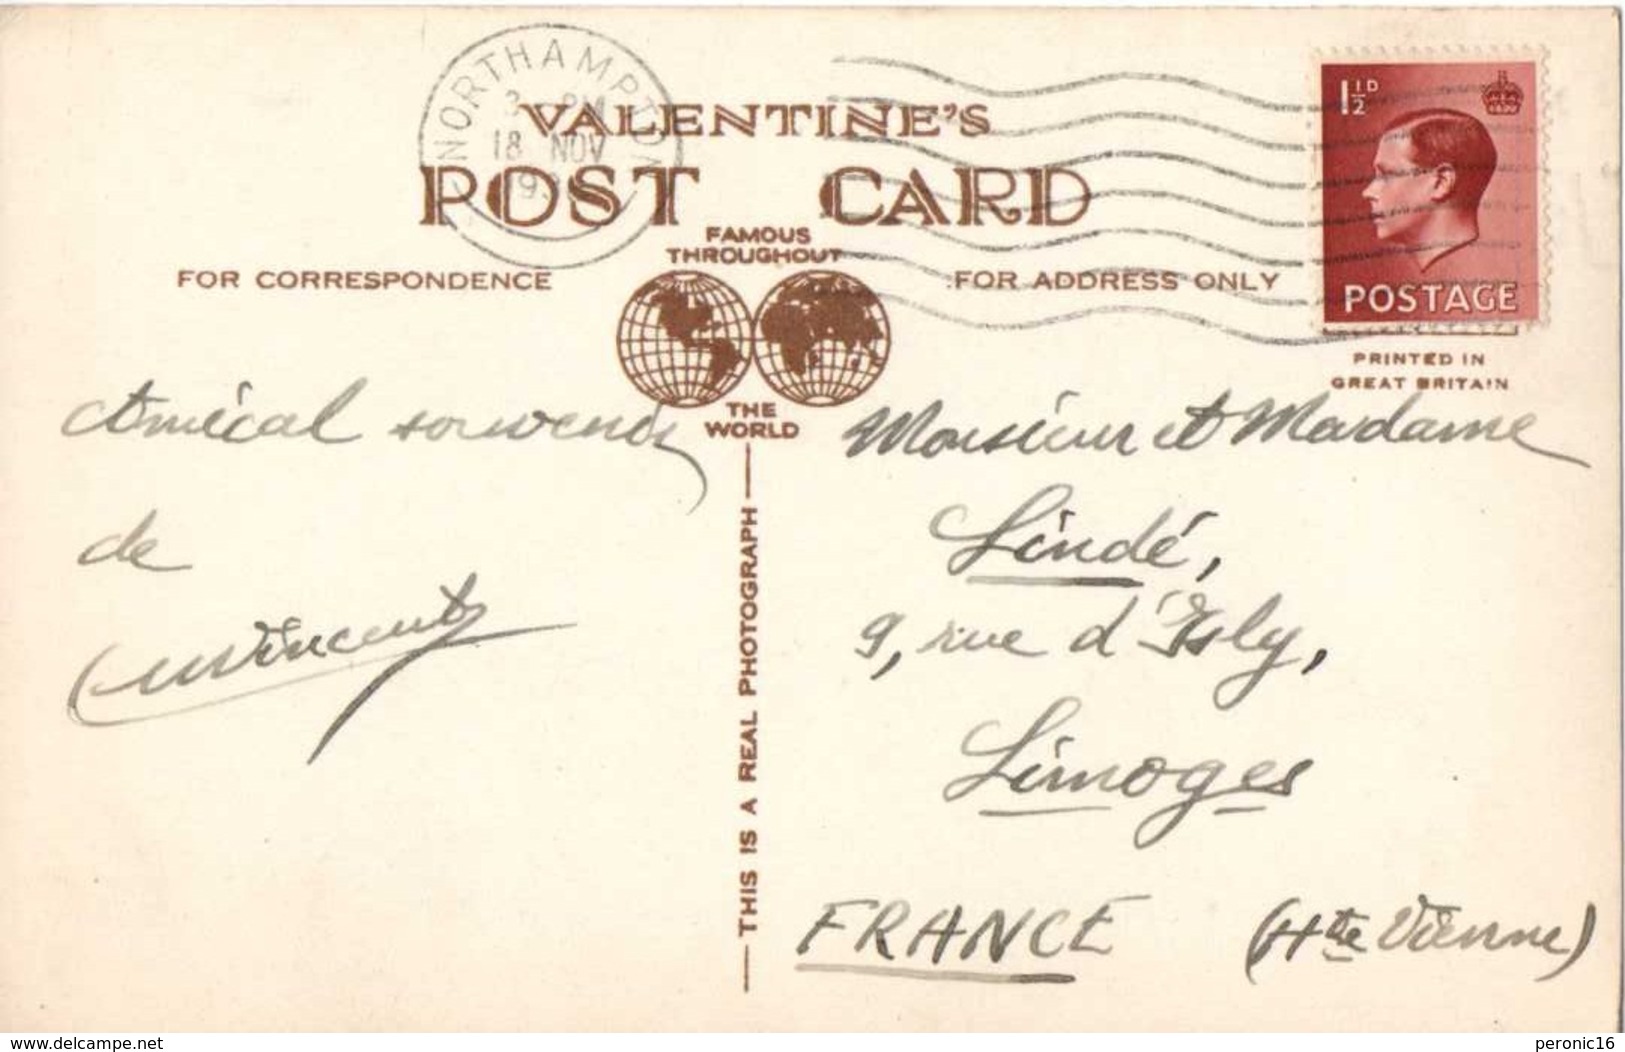 NORTHAMPTON
3 PM
18 NOV
VALENTINE'S
POST CARD
FAMOUS
THROUGHOUT
THE
WORLD
FOR CORRESPONDENCE
FOR ADDRESS ONLY
1½D
POSTAGE
PRINTED IN
GREAT BRITAIN
Amical souvenir
de
Vincent
THIS IS A REAL PHOTOGRAPH
Monsieur et Madame
Lindé,
9, rue d'Isly,
Limoges
FRANCE (Hte Vienne)
www.delcampe.net
peronic16